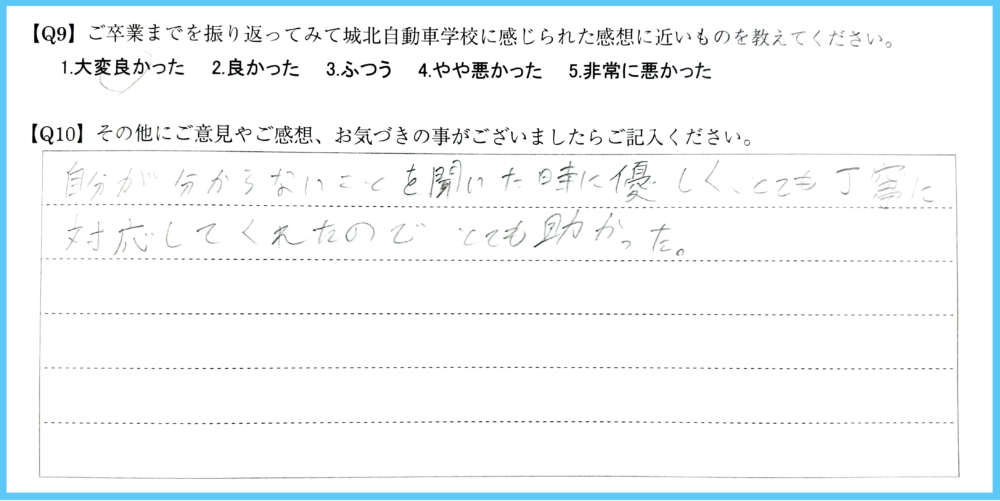 【Q9】ご卒業までを振り返ってみて城北自動車学校に感じられた感想に近いものを教えてください。
1.大変良かった 2.良かった 3.ふつう 4.やや悪かった 5.非常に悪かった
【Q10】その他にご意見やご感想、お気づきの事がございましたらご記入ください。
自分が分からないことを聞いた時に優しく、とても丁寧に
対応してくれたので とても助かった。